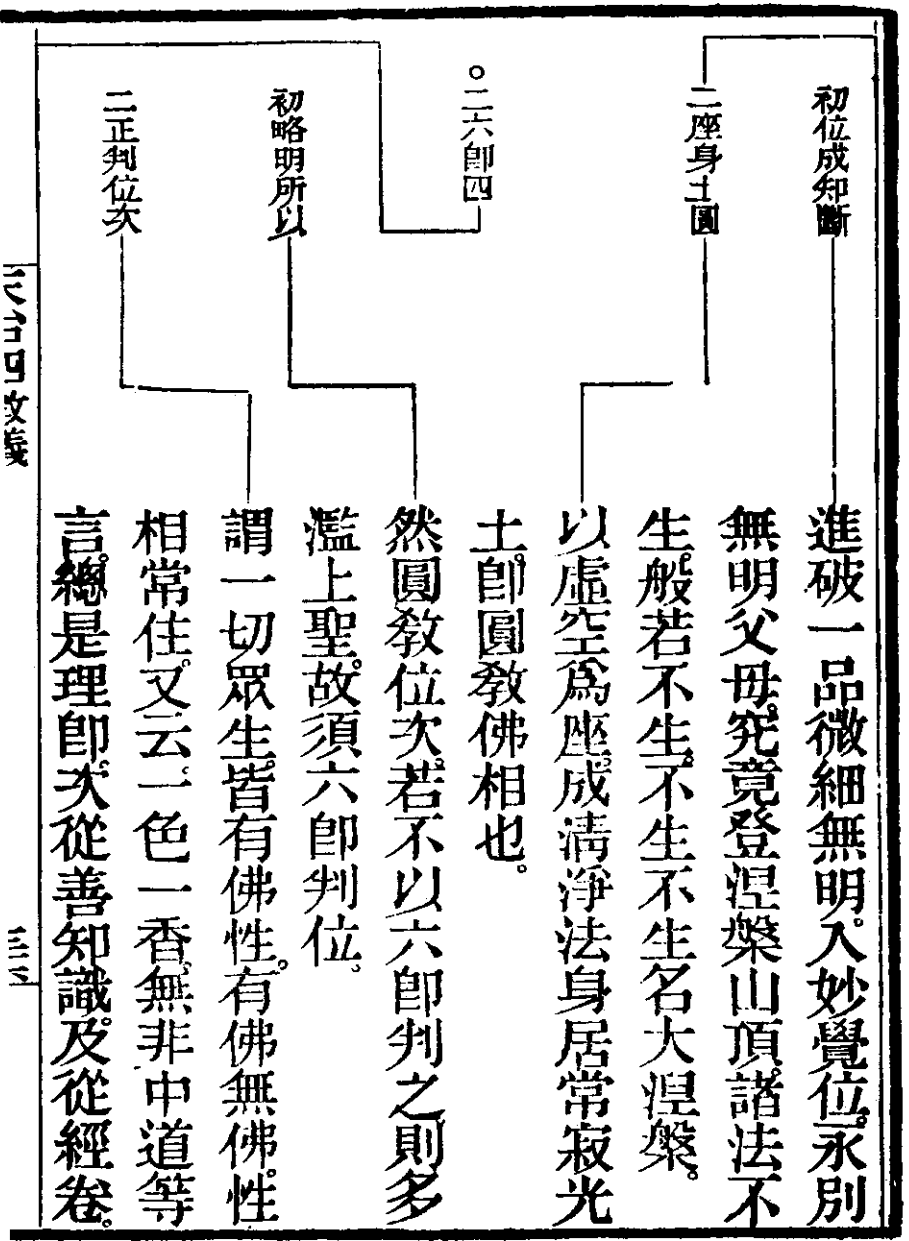 初位成知斷
二座身土圓
。二六卽四
初略明所以
二正判位次
進破一品微細無明。入妙覺位。永別
無明父母。究竟登涅槃山頂。諸法不
生。般若不生。不生不生名大涅槃。
以虛空爲座。成淸淨法身居常寂光
土。卽圓敎佛相也。
然圓敎位次。若不以六卽判之。則多
濫上聖。故須六卽判位。
謂一切眾生。皆有佛性。有佛無佛。性
相常住。又云。一色一香。無非中道等
言。總是理卽。次從善知識。及從經卷。
天台四教義